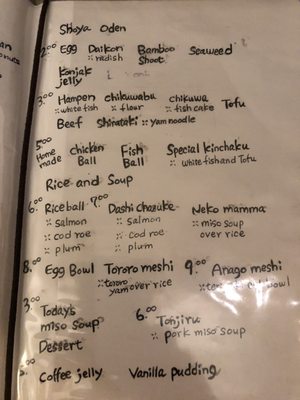 Shoya Oden
2.00 Egg Daikon Bamboo Seaweed
:: radish Shoot
Konjak
jelly
3.00 Hampen chikuwabu chikuwa Tofu
:: white fish :: flour :: fish cake
Beef Shirataki :: yam noodle
5.00 Chicken Fish Special kinchaku
Home made Ball Ball :: white fish and Tofu
Rice and Soup
6.00 Rice ball 7.00 Dashi Chazuke Neko mamma
:: Salmon :: Salmon :: miso soup
:: cod roe :: cod roe over rice
:: plum :: plum
8.00 Egg Bowl Tororo meshi 9.00 Anago meshi
:: tororo bowl
yam over rice
3.00 Today's 6.00 Tonjiru
miso soup :: pork miso soup
Dessert
Coffee jelly Vanilla pudding